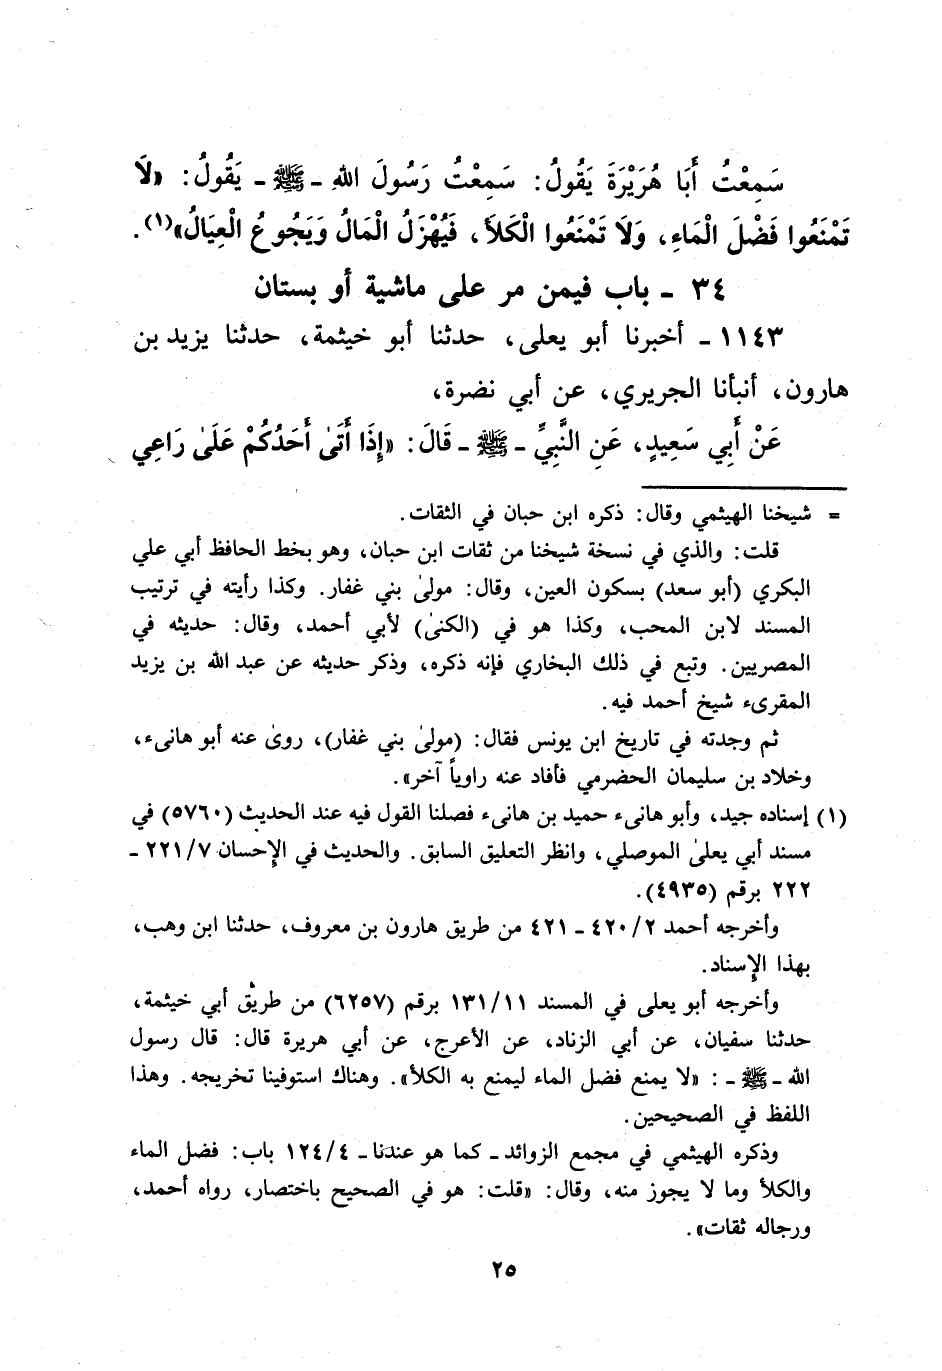 سَمِعْتُ أَبَا هُرَيْرَةَ يَقُولُ: سَمِعْتُ رَسُولَ اللهِ ـ ﷺ ـ يَقُولُ: «لَا
تَمْنَعُوا فَضْلَ الْمَاءِ، وَلَا تَمْنَعُوا الْكَلأَ، فَيُهْزَلُ الْمَالُ وَيَجُوعُ الْعِيَالُ»(١).
٣٤ ـ باب فيمن مر على ماشية أو بستان
١١٤٣ ـ أخبرنا أبو يعلى، حدثنا أبو خيثمة، حدثنا يزيد بن
هارون، أنبأنا الجريري، عن أبي نضرة،
عَنْ أَبِي سَعِيدٍ، عَنِ النَّبِيِّ ـ ﷺ ـ قَالَ: «إِذَا أَتَىٰ أَحَدُكُمْ عَلَىٰ رَاعِي
= شيخنا الهيثمي وقال: ذكره ابن حبان في الثقات.
قلت: والذي في نسخة شيخنا من ثقات ابن حبان، وهو بخط الحافظ أبي علي
البكري (أبو سعد) بسكون العين، وقال: مولىٰ بني غفار. وكذا رأيته في ترتيب
المسند لابن المحب، وكذا هو في (الكنىٰ) لأبي أحمد، وقال: حديثه في
المصريين. وتبع في ذلك البخاري فإنه ذكره، وذكر حديثه عن عبد الله بن يزيد
المقرىء شيخ أحمد فيه.
ثم وجدته في تاريخ ابن يونس فقال: (مولىٰ بني غفار)، روىٰ عنه أبو هانىء،
وخلاد بن سليمان الحضرمي فأفاد عنه راوياً آخر».
(١) إسناده جيد، وأبو هانىء حميد بن هانىء فصلنا القول فيه عند الحديث (٥٧٦٠) في
مسند أبي يعلىٰ الموصلي، وانظر التعليق السابق. والحديث في الإحسان ٢٢١/٧ ـ
٢٢٢ برقم (٤٩٣٥).
وأخرجه أحمد ٤٢٠/٢ ـ ٤٢١ من طريق هارون بن معروف، حدثنا ابن وهب،
بهذا الإسناد.
وأخرجه أبو يعلى في المسند ١٣١/١١ برقم (٦٢٥٧) من طريق أبي خيثمة،
حدثنا سفيان، عن أبي الزناد، عن الأعرج، عن أبي هريرة قال: قال رسول
الله ـ ﷺ ـ : «لا يمنع فضل الماء ليمنع به الكلأ». وهناك استوفينا تخريجه. وهذا
اللفظ في الصحيحين.
وذكره الهيثمي في مجمع الزوائد ـ كما هو عندنا ـ ١٢٤/٤ باب: فضل الماء
والكلأ وما لا يجوز منه، وقال: «قلت: هو في الصحيح باختصار، رواه أحمد،
ورجاله ثقات».
٢٥